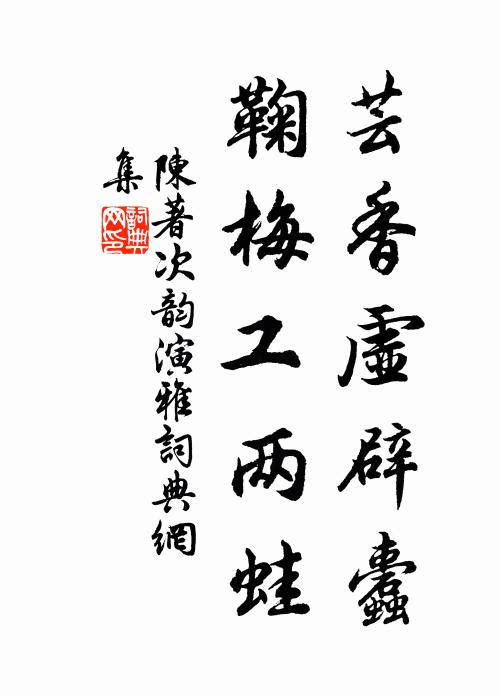 芸香虛辟蠹
鞠梅工两蛙
陳著次韵演雅詞典網
集
詞典网印